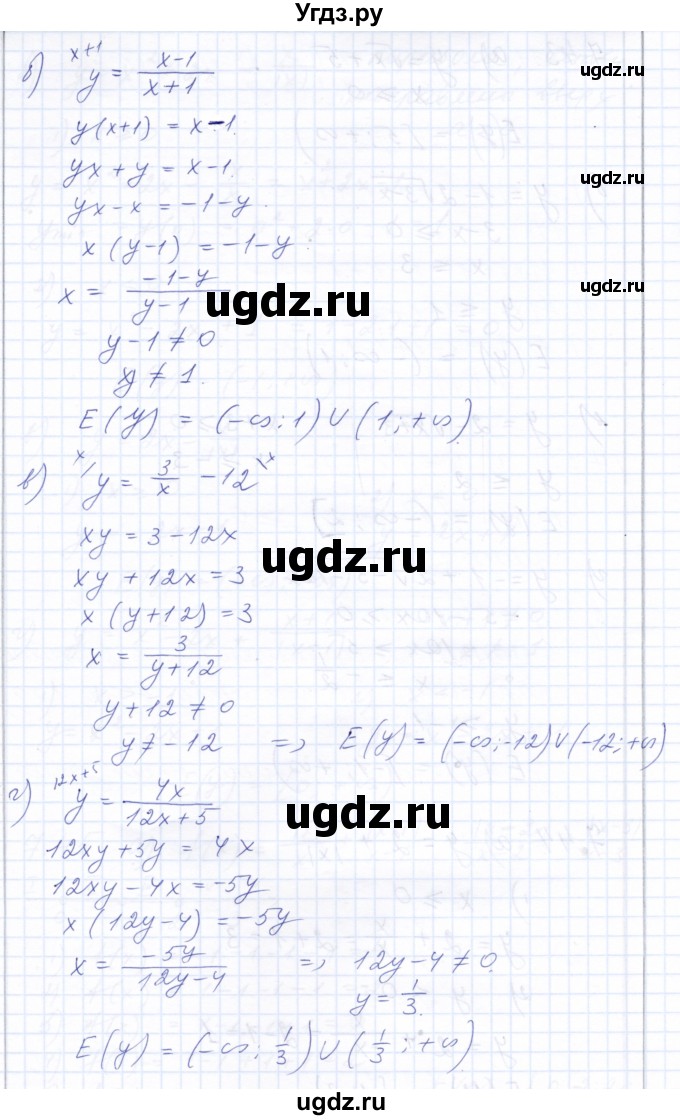 Угдз.ру
б) x+1 y = (x-1)/(x+1)
ugdz.ru
y(x+1) = x-1.
ugdz.ru
yx + y = x-1.
ugdz.ru
yx - x = -1-y.
x(y-1) = -1-y.
x = (-1-y)/(y-1)
ugdz.ru
ugdz.ru
y-1 ≠ 0
y ≠ 1.
E(y) = (-∞; 1) ∪ (1; +∞)
в) x/ y = 3/x - 12 \x
xy = 3 - 12x
ugdz.ru
xy + 12x = 3
x(y+12) = 3
x = 3/(y+12)
y+12 ≠ 0
y ≠ -12 => E(y) = (-∞; -12) ∪ (-12; +∞)
г) 12x+5 y = 4x/(12x+5)
ugdz.ru
12xy + 5y = 4x
12xy - 4x = -5y
x(12y-4) = -5y
x = -5y/(12y-4) => 12y-4 ≠ 0.
y = 1/3.
E(y) = (-∞; 1/3) ∪ (1/3; +∞)
ugdz.ru ugdz.ru ugdz.ru ugdz.ru ugdz.ru